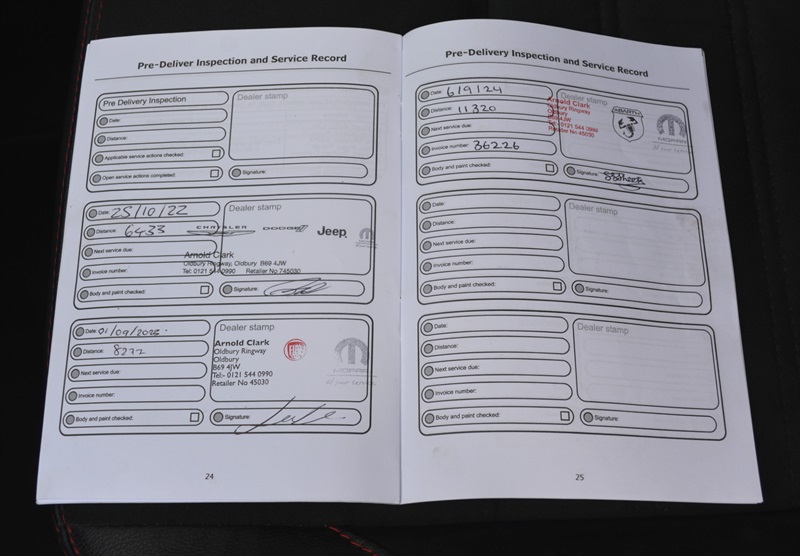 Pre-Deliver Inspection and Service Record
Pre Delivery Inspection
Dealer stamp
Date:
Distance:
Applicable service actions checked:
Open service actions completed:
Signature:
Date: 25/10/22
Dealer stamp
Distance: 6433
CHRYSLER DODGE Jeep
Next service due:
Arnold Clark
Invoice number:
Oldbury Ringway, Oldbury B69 4JW
Tel: 0121 544 0990 Retailer No 745030
Body and paint checked:
Signature:
Date: 01/09/2023.
Dealer stamp
Distance: 8277
Arnold Clark
Oldbury Ringway
Oldbury
B69 4JW
Tel:- 0121 544 0990
Retailer No 45030
MOPAR
Next service due:
Invoice number:
Body and paint checked:
Signature:
24
Pre-Delivery Inspection and Service Record
Date: 6/9/24
Dealer stamp
Distance: 11320
Arnold Clark
Oldbury Ringway
Oldbury
B69 4JW
Tel:- 0121 544 0990
Retailer No 45030
ABARTH
MOPAR
Next service due:
Invoice number: 36226
Body and paint checked:
Signature:
Date:
Dealer stamp
Distance:
Next service due:
Invoice number:
Body and paint checked:
Signature:
Date:
Dealer stamp
Distance:
Next service due:
Invoice number:
Body and paint checked:
Signature:
25